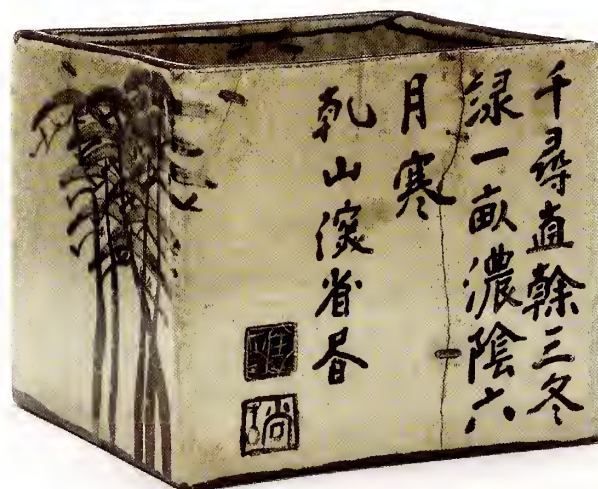 千尋直幹三冬
緑一畝濃陰六
月寒
乾山深省書